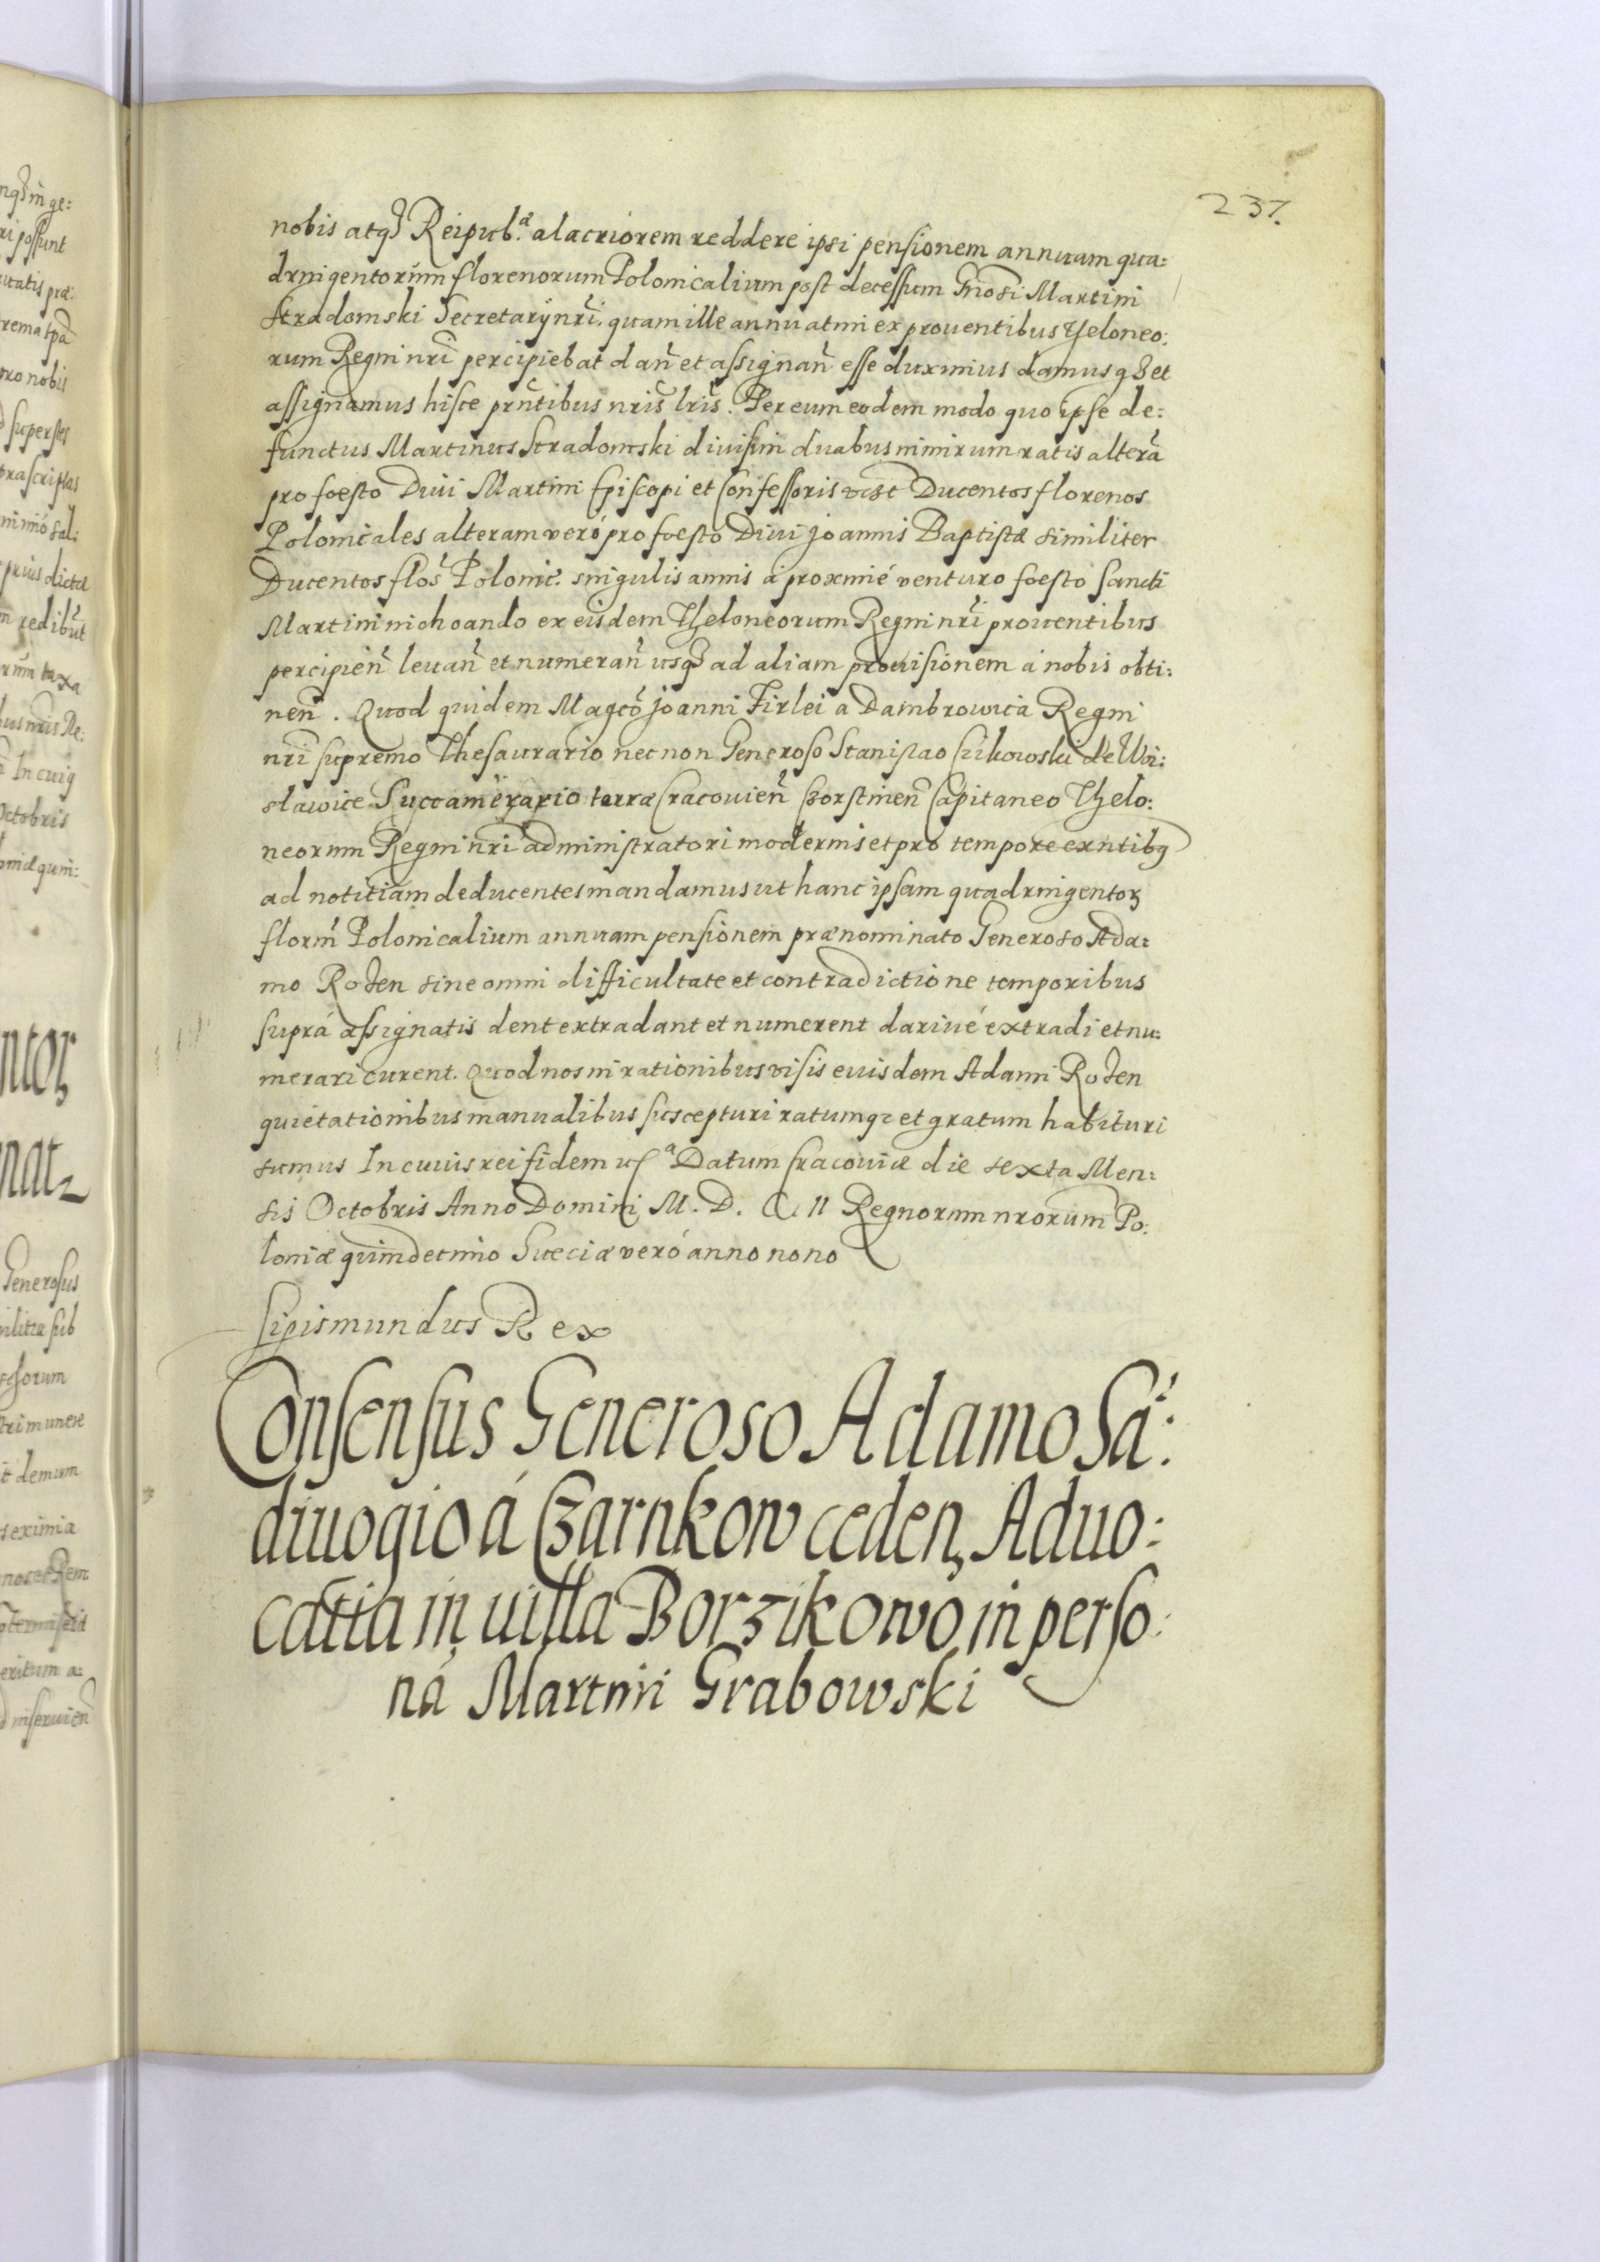 237.
nobis atq3 Reipub.æ alacriorem reddere ipsi pensionem annuam qua:
dringentorum florenorum Polonicalium post decessum Gnosi Martini
Stradomski Secretarÿ nr̃i. quam ille annuatim ex prouentibus Theloneo:
rum Regni nr̃i percipiebat dan̄ et assignan̄ esse duximus damusq3 et
assignamus hisce prñtibus nr̃is lr̃is. Per eum eodem modo quo ipse de:
functus Martinus Stradomski diuisim duabus nimirum ratis alterã
pro foesto Diui Martini Episcopi et Confessoris vidzt Ducentos florenos
Polonicales alteram veró pro foesto Diui Joannis Baptistæ similiter
Ducentos flos̃ Polonic̃. singulis annis á proximé venturo foesto sancti
Martini inchoando ex eisdem Theloneorum Regni nr̃i prouentibus
percipien̄ leuan̄ et numeran̄ usq3 ad aliam prouisionem á nobis obti:
nen̄. Quod quidem Magcõ Joanni Firlei a Dambrowica Regni
nr̃i supremo Thesaurario nec non Generoso Stanislao Czikowski de Woi:
slawice Succamerario terræ Cracouien̄ Czorstinen̄ Capitaneo Thelo:
neorum Regni nr̃i administratori modernis et pro tempore exñtibq
ad notitiam deducentes mandamus ut hanc ipsam quadringentoꝝ
florm̃ Polonicalium annuam pensionem prænominato Generoso Ada:
mo Roden sine omni difficultate et contradictione temporibus
suprá assignatis dent extradant et numerent dariué extradi et nu:
merari curent. Quod nos in rationibus visis euisdem Adami Roden
quietationibus manualibus suscepturi ratumq3 et gratum habituri
sumus In cuius rei fidem Datum Cracouiæ die sexta Men:
sis Octobris Anno Domini M. D. C. II Regnorum nrorum Po:
loniæ quindecimo Sueciæ veró anno nono
Sigismundus Rex
Consensus Generoso Adamo Sã:
diuogio á Czarnkow ceden, Aduo:
catia in villa Borzikowo in perso:
ná Martini Grabowski